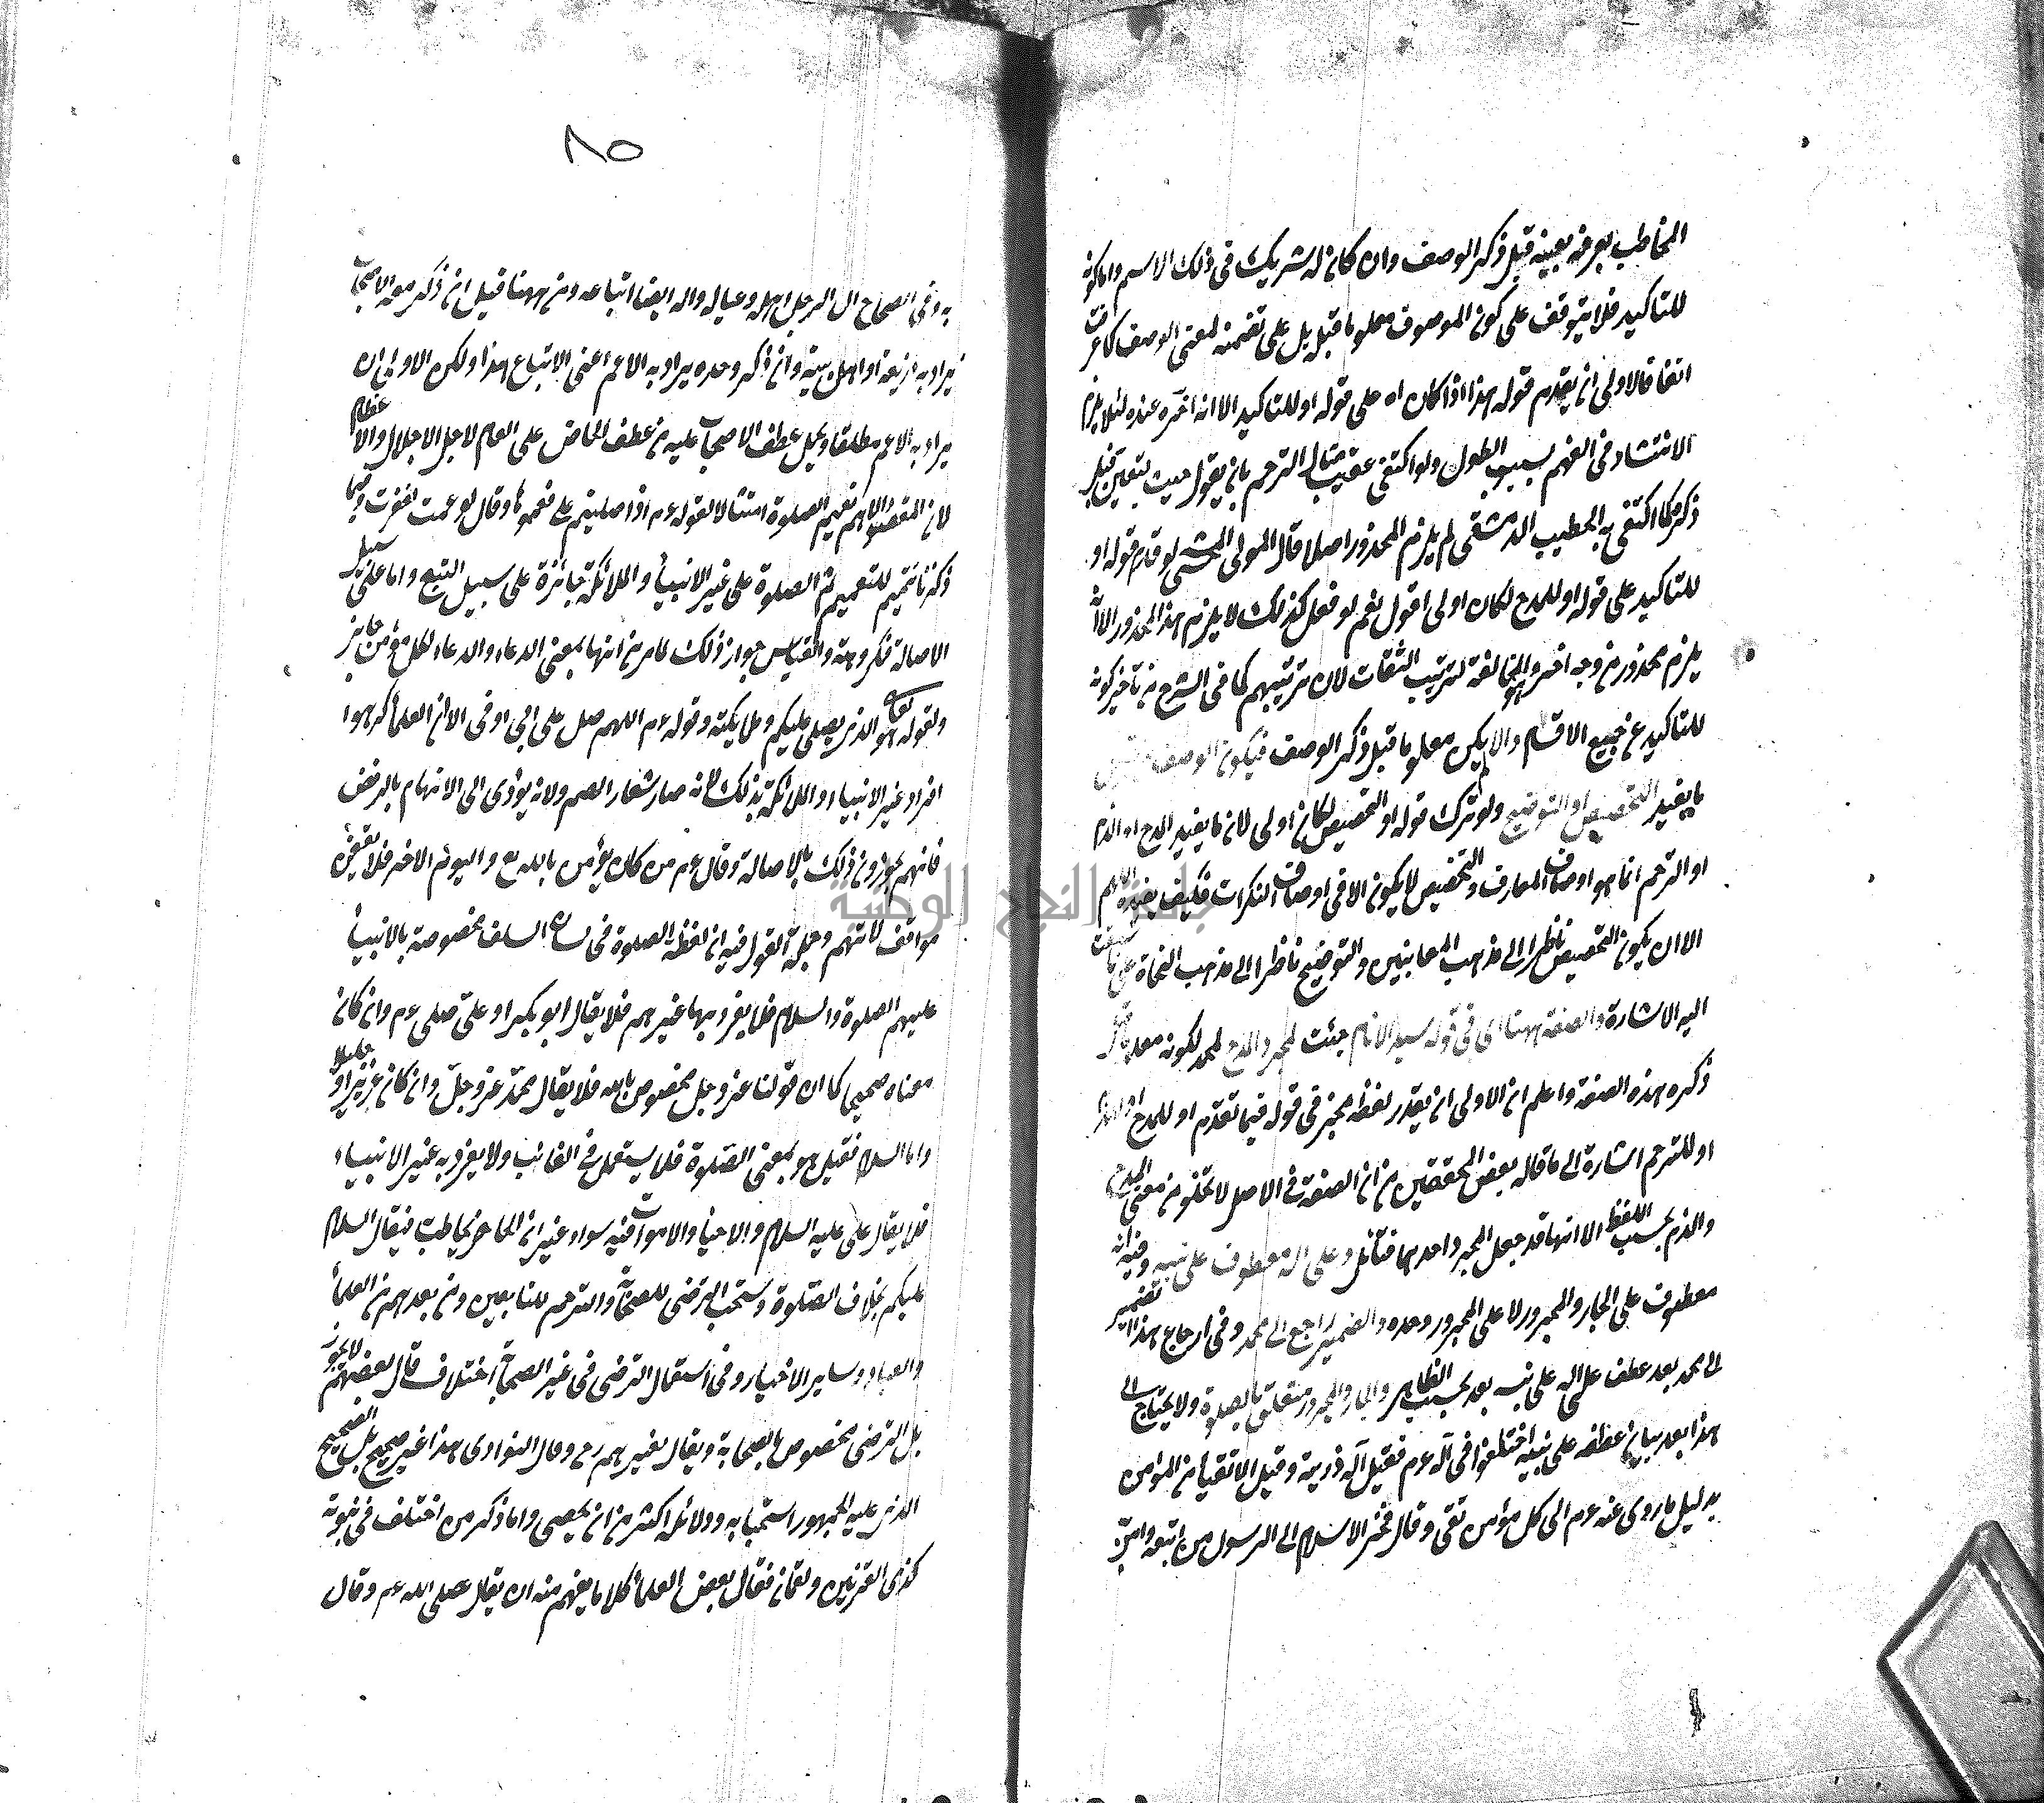 المخاطب يعرفه بعينه قبل ذكر الوصف وان كان له شريك في ذلك الاسم واما كونه
للتاكيد فلا يتوقف على كون الموصوف معلوما قبله بل على تضمنه لمعنى الوصف كما عرفت
انفا فالاولى ان يقدم قوله هذا اذا كان اه على قوله او للتاكيد الا انه اخره عنده لئلا يلزم
الانتشار في الفهم بسبب الطول ولو اكتفى عقيب مثال الترحم بان يقول حيث يتعين قبل
ذكره كما اكتفى به الخطيب الدمشقي لم يلزم المحذور اصلا قال المولى المحشي لو قدم قوله او
للتاكيد على قوله او للمدح لكان اولى اقول نعم لو فعل كذلك لا يلزم هذا المحذور الا انه
يلزم محذور من وجه اخر وهو المخالفة لترتيب الثقات لان ترتيبهم كما في الشرح من تأخير كونه
للتاكيد عن جميع الاقسام والا يكن معلوما قبل ذكر الوصف فيكون الوصف
ما يفيد التخصيص او التوضيح ولو ترك قوله او التخصيص لكان اولى لان ما يفيد المدح او الذم
او الترحم انما هو اوصاف المعارف والتخصيص لا يكون الا في اوصاف النكرات فكيف يفيده اللهم
الا ان يكون التخصيص ناظرا الى مذهب المعانيين والتوضيح ناظرا الى مذهب النحاة على ما سبقت
اليه الاشارة والصفة ههنا اى في قوله سيد الانام جئت لمجرد المدح لمحمد لكونه معلوما قبل
ذكره هذه الصفة واعلم ان الاولى ان يقدر لفظ مجرد في قوله فيما تقدم او للمدح او للذم
او للترحم اشارة الى ما قاله بعض المحققين من ان الصفة في الاصل لا تخلو من معنى المدح
والذم بحسب اللفظ الا انها قد جعل المجرد احدهما فتأمل وعلى اله معطوف على نبيه وفيه انه
معطوف على الجار والمجرور لا على المجرور وحده والضمير راجع الى محمد وفى ارجاع هذا الضمير
الى محمد بعد عطف على اله على نبيه بعد بحسب الظاهر والجار والمجرور متعلق بالصلوة ولا يحتاج الى
هذا بعد بيان عطفه على نبيه اختلفوا في آله عم فقيل آله ذريته وقيل الاتقياء من المؤمن
بدليل ما روى عنه عم الى كل مؤمن تقى وقال فخر الاسلام الى الرسول من اتبعه وامن
٨٥
به وفي الصحاح ال الرجل اهله وعياله واله ايضا اتباعه ومن ههنا قيل ان ذكر معه الاصحاب
يراد به ذريته او اهل بيته وان ذكر وحده يراد به الاعم اعنى الاتباع هذا ولكن الاولى ان
يراد به الاعم مطلقا ويجعل عطف الاصحاب عليه من عطف الخاص على العام لاجل الاجلال والاعظام
لان المقصود الاهم تعميم الصلوة امتثالا لقوله عم اذا صليتم على فعموها وقال لو عممت لغفرت وفيما
ذكرنا تتميم للتعميم ثم الصلوة على غير الانبياء والملائكة جائزة على سبيل التبع واما على سبيل
الاصالة فمكروهة والقياس جواز ذلك لما مر من انها بمعنى الدعاء والدعاء لكل مؤمن جايز
ولقوله تعالى هو الذى يصلى عليكم وملايكته وقوله عم اللهم صل على ابى اوفى الا ان العلماء كرهوا
افراد غير الانبياء والملائكة بذلك لانه صار شعار الصم ولانه يؤدى الى الاتهام بالرفض
فانهم يجوزون ذلك بالاصالة وقال عم من كان يؤمن بالله تع واليوم الاخر فلا يقفن
مواقف التهم وجملة القول فيه ان لفظ الصلوة في لسان السلف مخصوصة بالانبياء
عليهم الصلوة والسلام فلا يفرد بها غيرهم فلا يقال ابو بكر او على صلى عم وان كان
معناه صحيحا كما ان قولنا عز وجل مخصوص بالله فلا يقال محمد عز وجل وان كان عزيزا وجليلا
واما السلام فقيل هو بمعنى الصلوة فلا يستعمل في الغائب ولا يفرد به غير الانبياء
فلا يقال على عليه السلام والاحياء والاموات فيه سواء غير ان الحاضر يخاطب فيقال السلام
عليكم بخلاف الصلوة ويستحب الترضى للصحابة والترحم للتابعين ومن بعدهم من العلماء
والعباد وساير الاخيار وفي استعمال الترضى في غير الصحابة اختلاف قال بعضهم لا يجوز
بل الترضى مخصوص بالصحابة ويقال لغيرهم رح وقال النواوى هذا غير صحيح بل الصحيح
الذى عليه الجمهور استحبابه ودلائله اكثر من ان يحصى واما ذكر من اختلف في نبوته
كذى القرنين ولقمان فقال بعض العلماء كلاما يفهم منه ان يقال صلى الله عم وقال
جامعة النجاح الوطنية